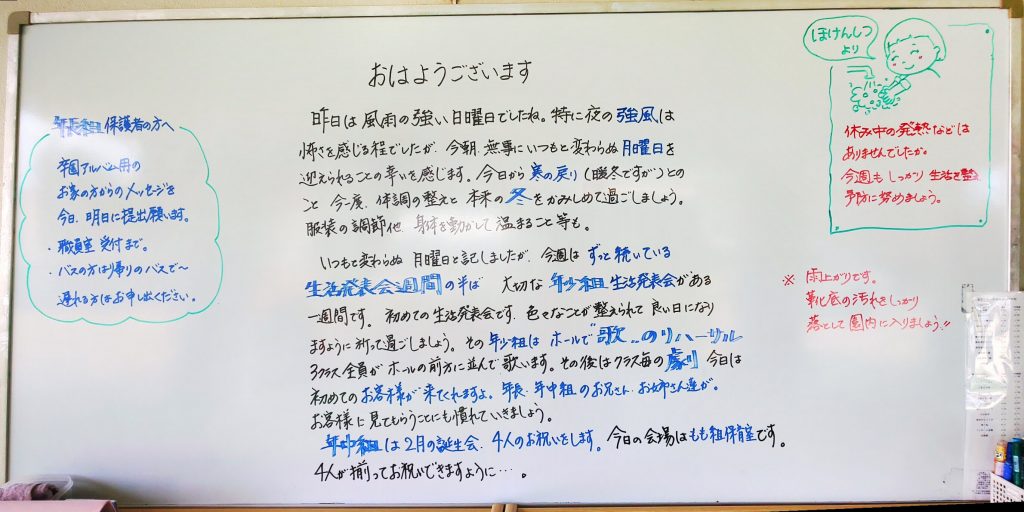 おはようございます
昨日は風雨の強い日曜日でしたね。特に夜の強風は
怖さを感じる程でしたが、今朝、無事にいつもと変わらぬ月曜日を
迎えられることの幸いを感じます。今日から寒の戻り(暖冬ですが)との
こと 今一度、体調の整えと 本来の冬をかみしめて過ごしましょう。
服装の調節他、身体を動かして温まること等も。
いつもと変わらぬ 月曜日と記しましたが、今週はずっと続いている
生活発表会週間の半ば 大切な年少組生活発表会がある
一週間です。初めての生活発表会です、色々なことが整えられて良い日になり
ますように祈って過ごしましょう。その年少組はホールで"歌"のリハーサル
3クラス全員がホールの前方に並んで歌います。その後はクラス毎の劇り 今日は
初めてのお客様が来てくれますよ。年長、年中組のお兄さん、お姉さん達が。
お客様に見てもらうことにも慣れていきましょう。
年中組は2月の誕生会、4人のお祝いをします。今日の会場はもも組保育室です。
4人が揃ってお祝いできますように…。
年長組保護者の方へ
卒園アルバム用の
お家の方からのメッセージを
今日、明日に提出願います。
・職員室受付まで。
・バスの方は帰りのバスで〜
遅れる方はお申し出ください。
ほけんしつ
より
休み中の発熱などは
ありませんでしたか。
今週もしっかり生活を整え
予防に努めましょう。
※ 雨上がりです。
靴底の汚れをしっかり
落として園内に入りましょう!!